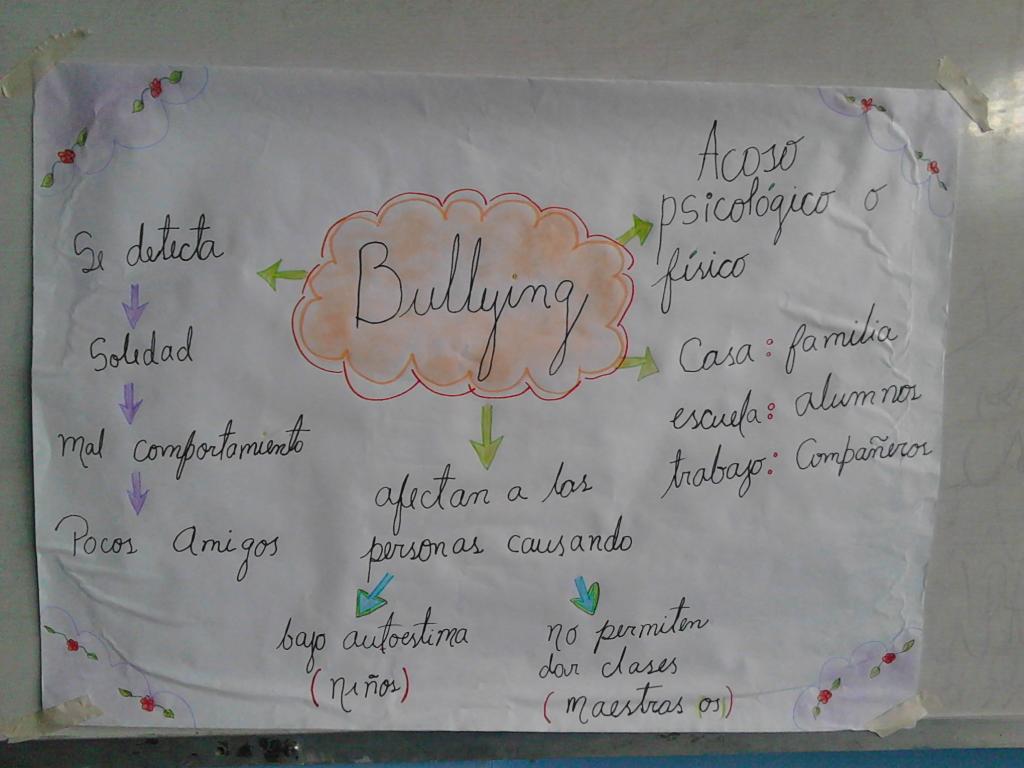 Bullying
Acoso
psicológico o
físico
Casa: familia
escuela: alumnos
trabajo: Compañeros
Se detecta
Soledad
Mal comportamiento
Pocos Amigos
afectan a las
personas causando
bajo autoestima
(niños)
no permiten
dar clases
(maestras os)